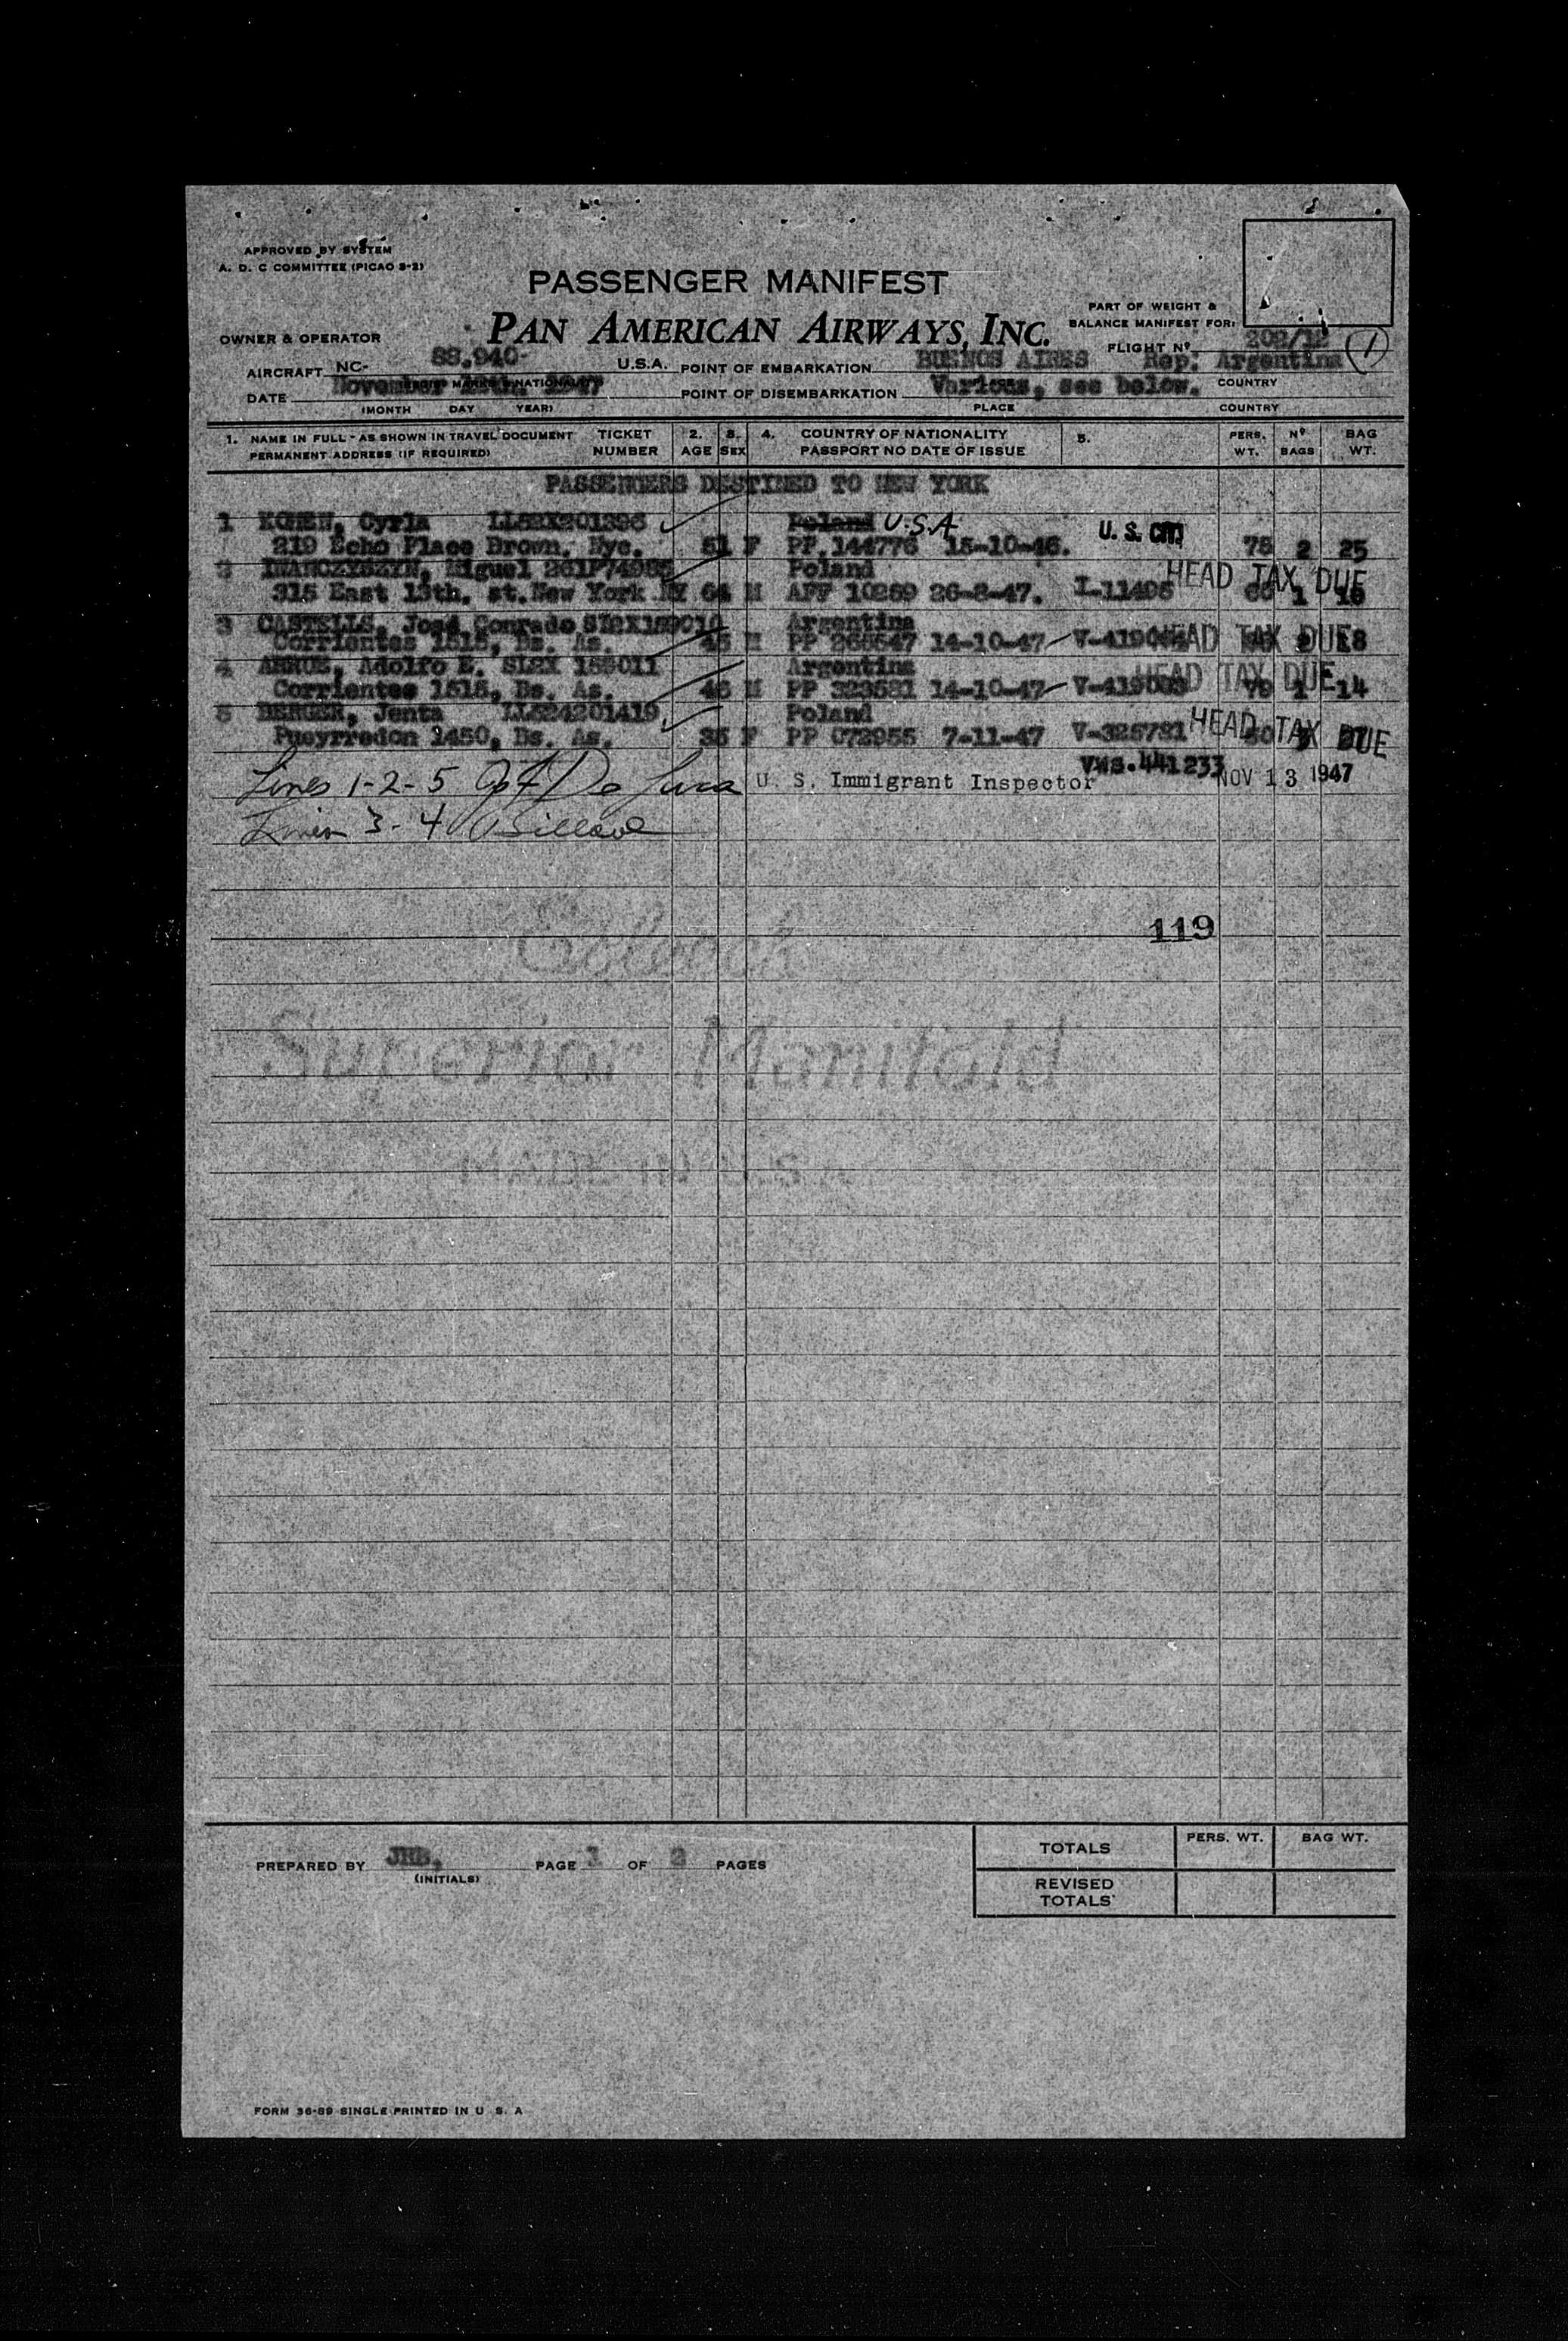 APPROVED BY SYSTEM
A. D. C COMMITTEE (PICAO S-2)
PASSENGER MANIFEST
PAN AMERICAN AIRWAYS, INC.
PART OF WEIGHT &
BALANCE MANIFEST FOR:
OWNER & OPERATOR
FLIGHT Nº 202/12 1
AIRCRAFT NC- 88.940- U.S.A. POINT OF EMBARKATION BUENOS AIRES Rep: Argentina
DATE November 1947 POINT OF DISEMBARKATION Various, see below. COUNTRY
(MONTH DAY YEAR) PLACE COUNTRY
1. NAME IN FULL - AS SHOWN IN TRAVEL DOCUMENT TICKET 2. 3. 4. COUNTRY OF NATIONALITY 5. PERS. Nº BAG
PERMANENT ADDRESS (IF REQUIRED) NUMBER AGE SEX PASSPORT NO DATE OF ISSUE WT. BAGS WT.
PASSENGERS DESTINED TO NEW YORK
1 KOHEN, Cyrla LLSRX201396 Poland U.S.A
219 Echo Place Brown, Nyc. 51 F PP 144776 15-10-46. U. S. CIT. 78 2 25
2 IWANCZYSZYN, Miguel Poland HEAD TAX DUE
315 East 13th. st. New York NY 64 M AFF 10269 26-8-47. I-11495 1 16
3 CASTELLS, José Conrado Argentina
Corrientes 1515, Bs. As. 45 M PP 265547 14-10-47 HEAD TAX DUE 18
4 Adolfo E. SLRX 159011 Argentina HEAD TAX DUE
Corrientes 1515, Bs. As. 46 M PP 323581 14-10-47 79 1 14
5 BERGER, Jenta LLS24201419 Poland HEAD TAX DUE
Pueyrredon 1450, Bs. As. 35 F PP 072955 7-11-47 V-325721
VWS.441233
Lines 1-2-5 De Luca U. S. Immigrant Inspector NOV 13 1947
Lines 3-4
119
Superior Manifold
MADE IN U.S.
TOTALS PERS. WT. BAG WT.
PREPARED BY JRB. PAGE 1 OF 2 PAGES
(INITIALS)
REVISED
TOTALS
FORM 36-89 SINGLE PRINTED IN U. S. A